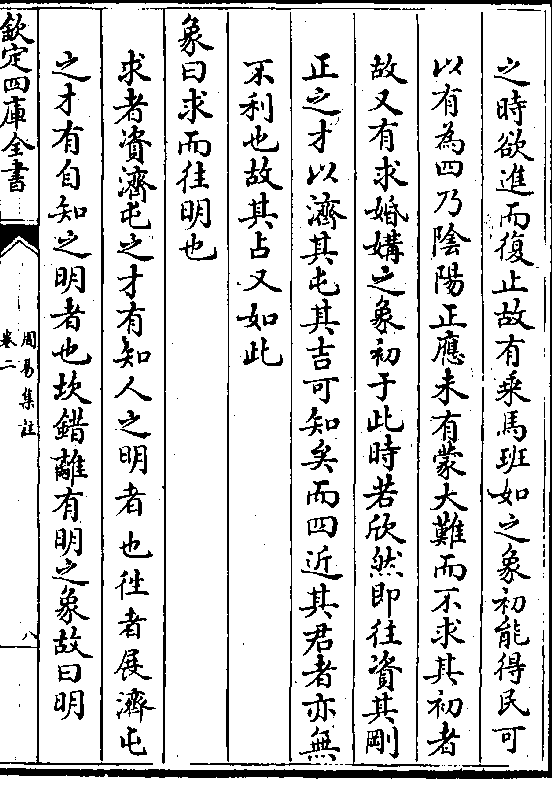 之時欲進而復止故有乘馬班如之象初能得民可
以有為四乃陰陽正應未有蒙大難而不求其初者
故又有求婚媾之象初于此時若欣然即往資其剛
正之才以濟其屯其吉可知矣而四近其君者亦無
不利也故其占又如此
象曰求而往明也
求者資濟屯之才有知人之明者也徃者展濟屯
之才有自知之明者也坎錯離有明之象故曰明
欽定四庫全書
周易集註
卷二
八